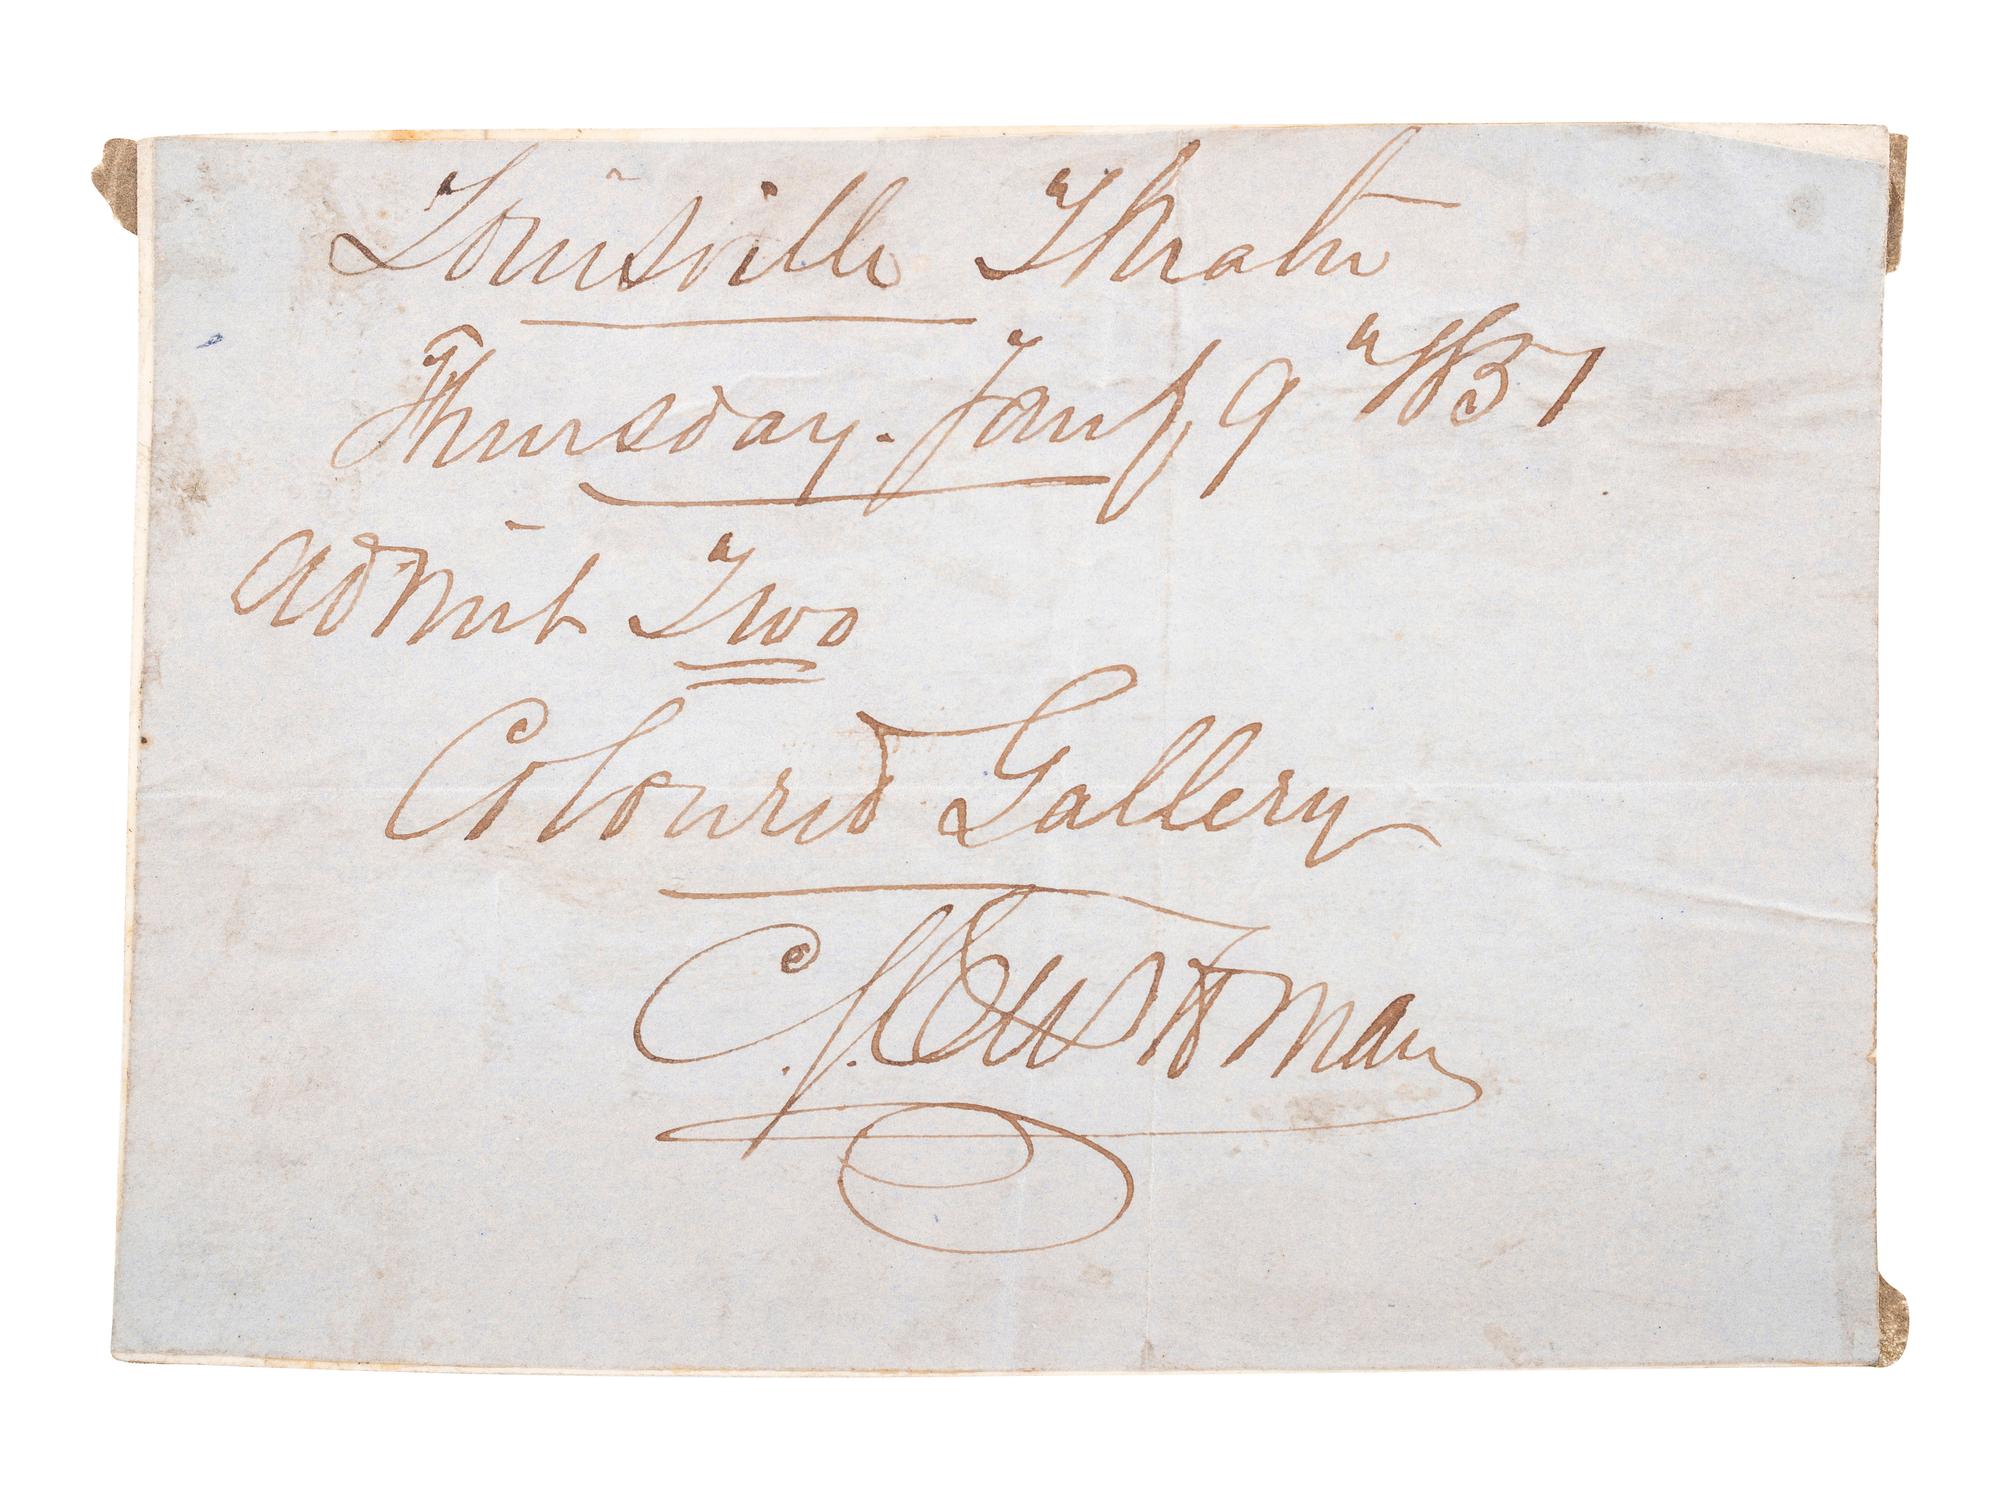 Louisville Theatre
Thursday. Jany 9 1851
Admit Two
Coloured Gallery
C. Cushman